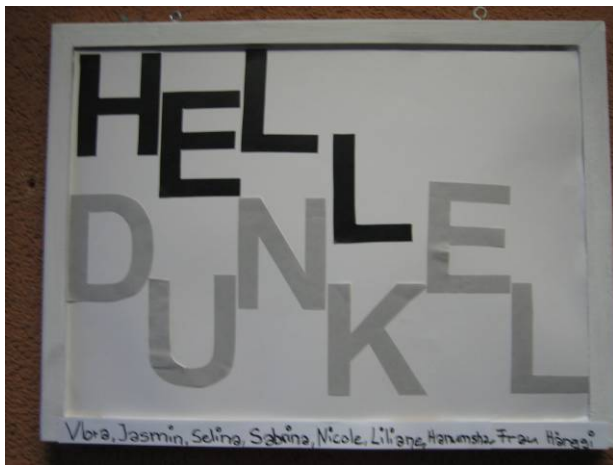 HELL
DUNKEL
Vlora, Jasmin, Selina, Sabrina, Nicole, Liliane, Hanumsha, Frau Hänggi